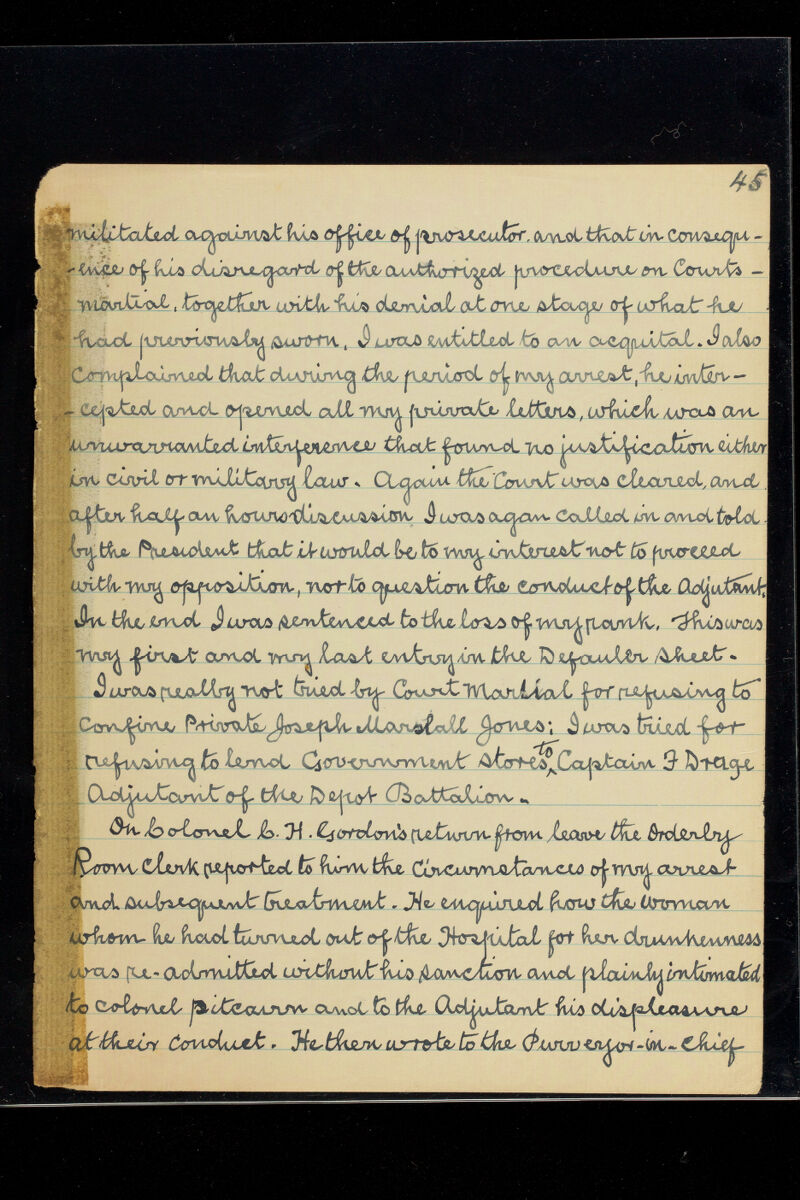 45
militated against his office of prosecutor. and that in consequ-
-ence of his disregard of the authorized procedure on Courts-
martial, together with his denial at one stage of what he
had previously sworn, I was entitled to an acquital. I also
Complained that during the period of my arrest, he inter-
-cepted and opened all my private letters, which was an
unwarranted interference that found no justification either
in civil or military law. Again the Court was cleared, and
after half an hours discussion I was agan called in and told
by the President that it would be to my interest not to proceed
with my opposition, nor to question the conduct of the Adjutant.
In the end I was sentenced to the loss of my rank. This was
my first and my last entry in the Defauler sheet.
I was really not tried by Court Martial for refusing to
Confine Private Joseph Marshall Jones; I was tried for
refusing to lend Government stores to Captain F Drage
Adjutant of the Depot Battalion.
On Colonel C. H. Gordon's return from leave the Orderly
Room Clerk reported to him the Circumstances of my arrest
and subsequent treatment. He enquired how the woman
whom he had turned out of the Hospital for her drunkenness
was re-admitted without his sanction and plainly intimated
to colonel pitcairn and to the Adjutant his displeasure
at their conduct. He then wrote to the Purveyor-in-Chief